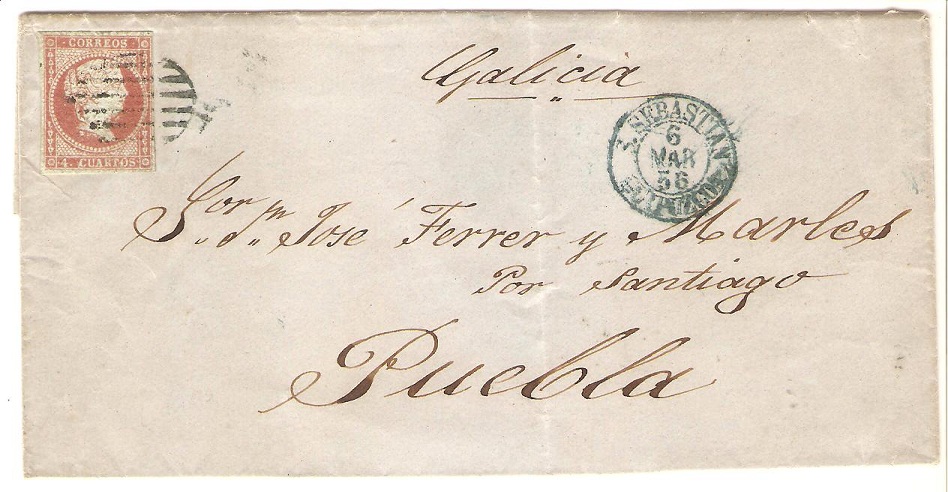 CORREOS
4. CUARTOS
Galicia
S. SEBASTIAN
6
MAR
56
Sor. Dn. José Ferrer y Marles
Por Santiago
Puebla